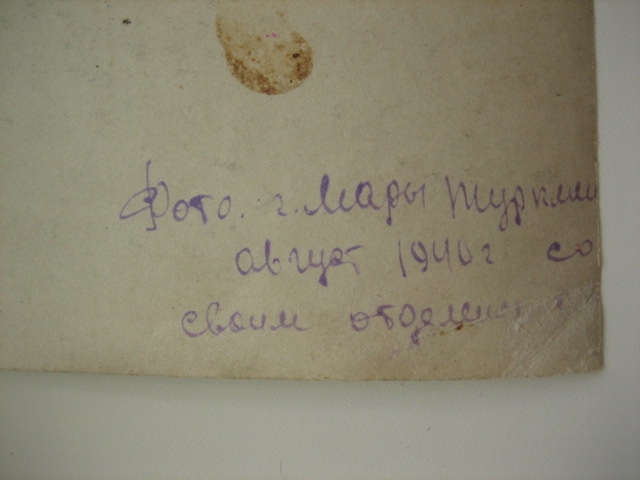 Фото. г. Мары Туркмен
август 1946 г со
своим отделен